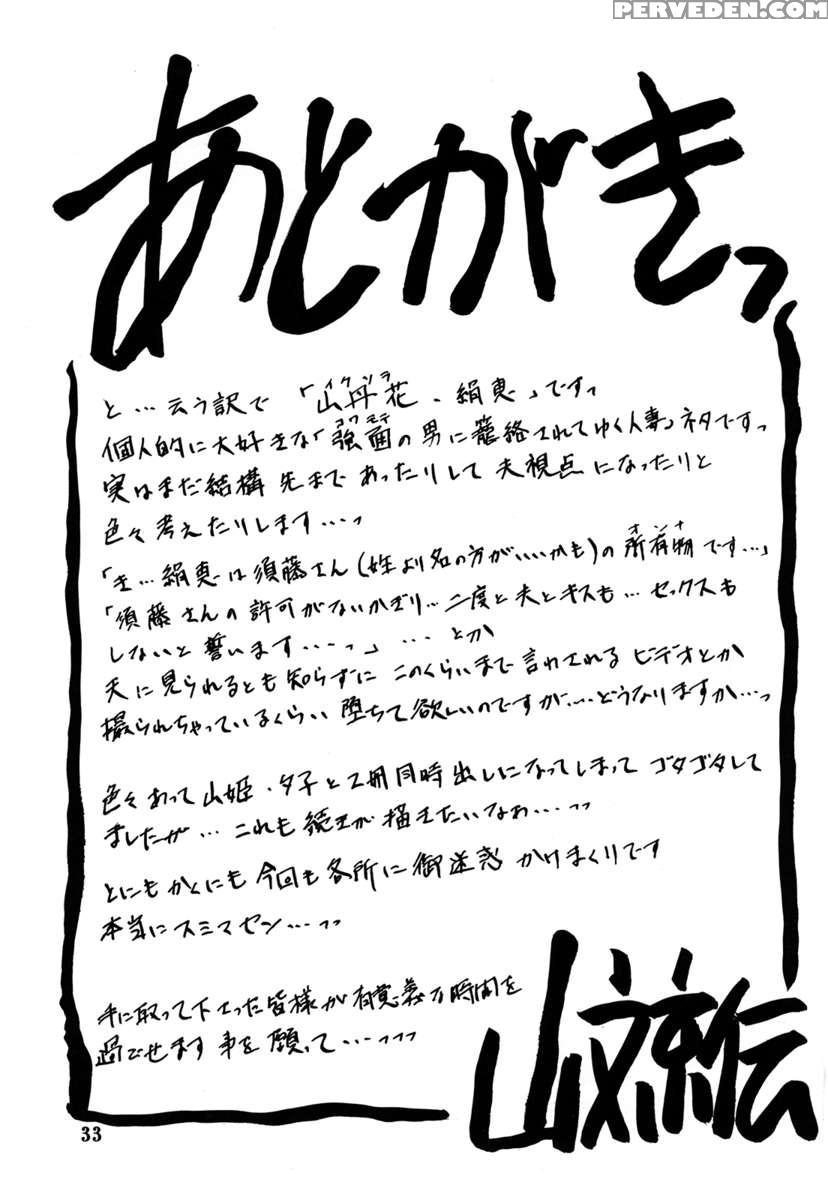 PERVEDEN.COM
あとがきっ
と…云う訳で「山丹花・絹恵」ですっ
イクンラ
個人的に大好きな「強面の男に籠絡されてゆく人妻」ネタですっ
コワモテ
実はまだ結構先まであったりして夫視点になったりと
色々考えたりします…っ
「き…絹恵は須藤さん(姓より名の方がいいかも)の所有物です…」
オンナ
「須藤さんの許可がないかぎり…二度と夫とキスも…セックスも
しないと誓います…っ」…とか
夫に見られるとも知らずにこのくらいまで言わされるビデオとか
撮られちゃっているくらい堕ちて欲しいのですが…どうなりますか…っ
色々あって山姫・夕子と2冊同時出しになってしまってゴタゴタして
ましたが…これも続きが描きたいなぁ…っっ
とにもかくにも今回も各所に御迷惑かけまくりです
本当にスミマセン…っっ
手に取って下さった皆様が有意義な時間を
過ごせます事を願って…っっっ
山文京伝
33